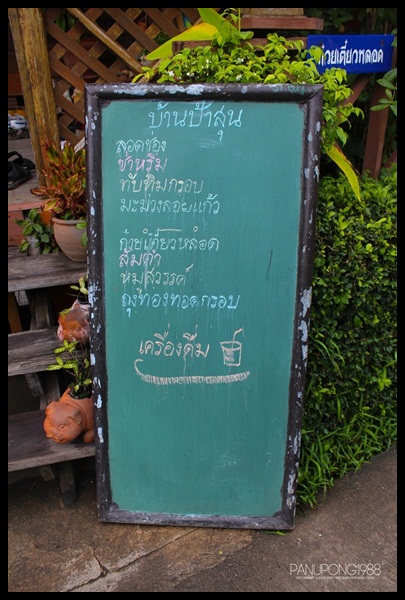 ก๋วยเตี๋ยวหลอด
บ้านป้าสุน
ลอดช่อง
ซ่าหริ่ม
ทับทิมกรอบ
มะม่วงลอยแก้ว
ก๋วยเตี๋ยวหลอด
ส้มตำ
หมูสวรรค์
ถุงทองทอดกรอบ
เครื่องดื่ม
PANUPONG1988